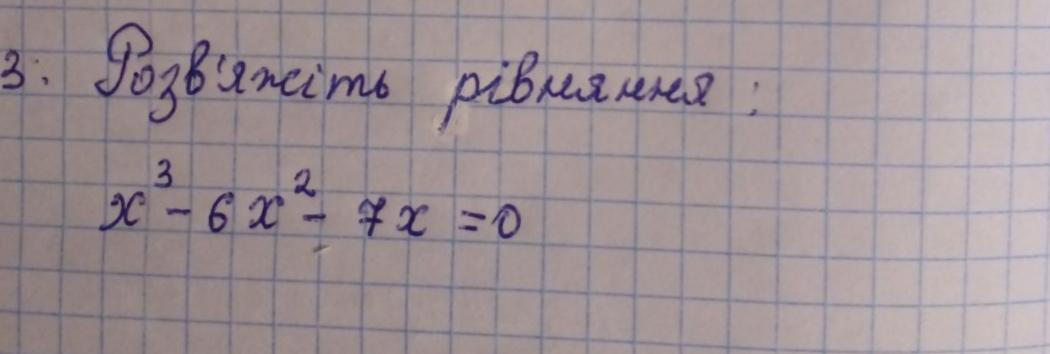 3. Розв'яжіть рівняння :
x³ - 6x² - 7x = 0